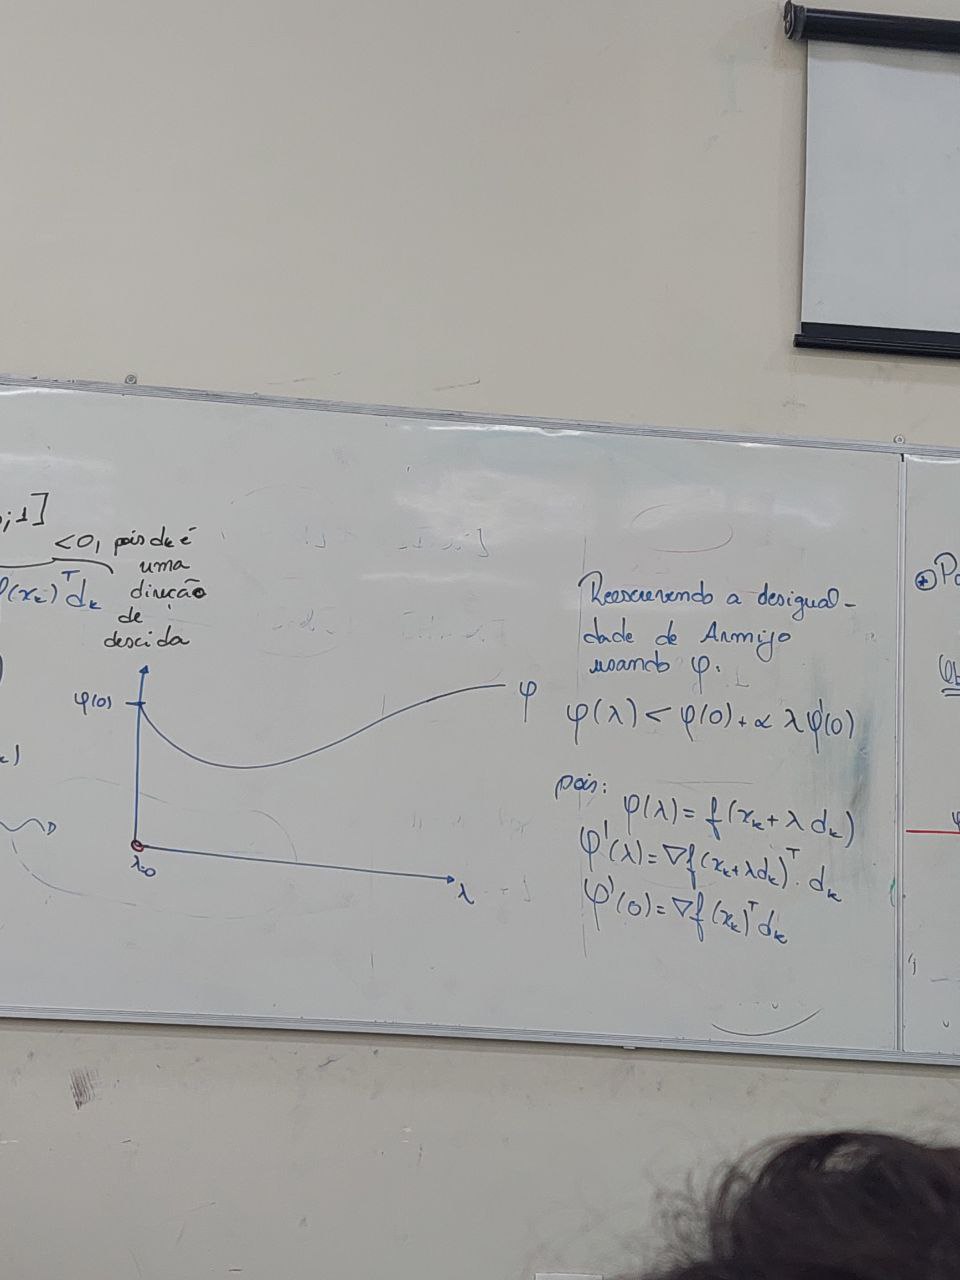 ;1]
<0, pois dₖ é
uma
direção
de
descida
(xₖ)ᵀdₖ
φ(0)
φ
λ=0
λ
Reescrevendo a desigual-
dade de Armijo
usando φ.
φ(λ) < φ(0) + α λ φ'(0)
pois:
φ(λ) = f(xₖ + λ dₖ)
φ'(λ) = ∇f(xₖ + λdₖ)ᵀ. dₖ
φ'(0) = ∇f(xₖ)ᵀdₖ